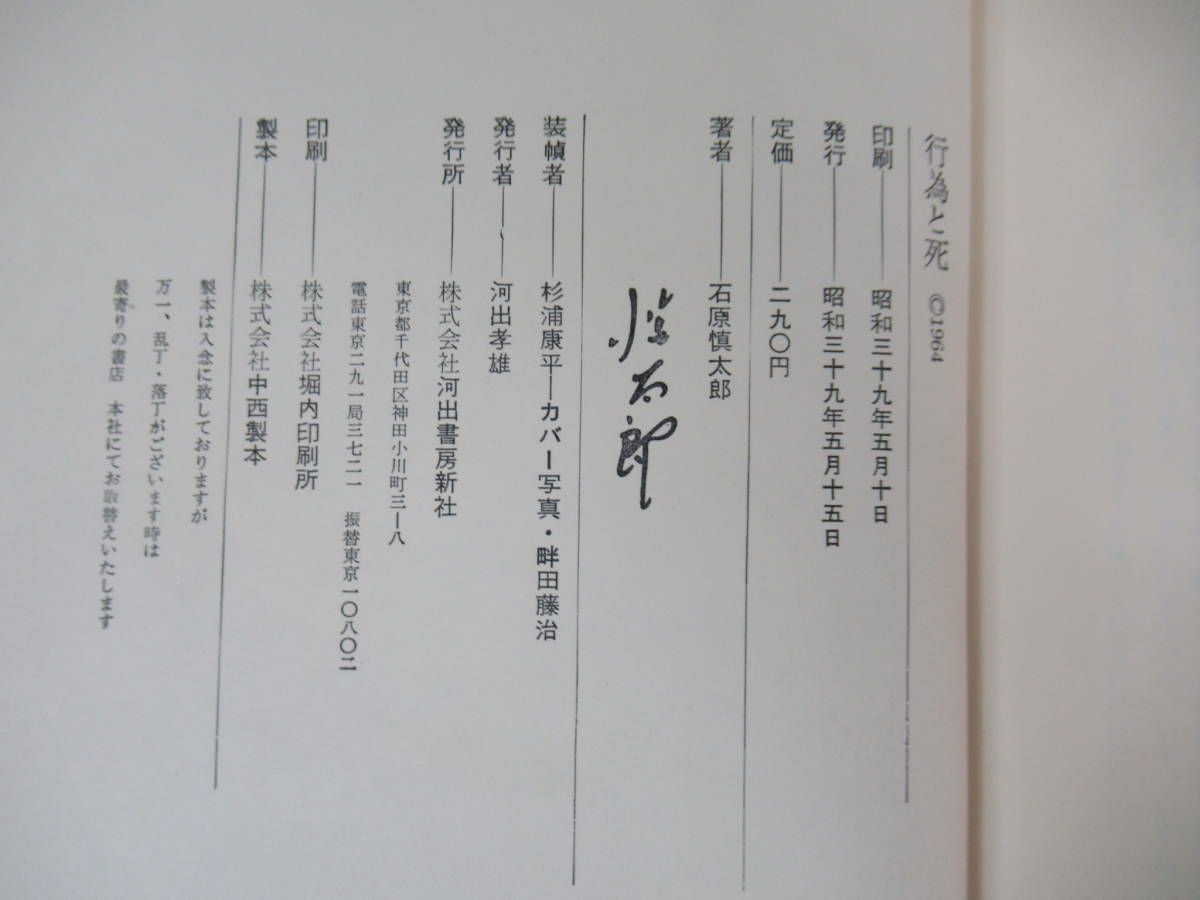 行為と死 ©1964
印刷――昭和三十九年五月十日
発行――昭和三十九年五月十五日
定価――二九〇円
著者――石原慎太郎
慎太郎
装幀者――杉浦康平―カバー写真・畔田藤治
発行者――河出孝雄
発行所――株式会社河出書房新社
東京都千代田区神田小川町三―八
電話東京二九一局三七二一 振替東京一〇八〇二
印刷――株式会社堀内印刷所
製本――株式会社中西製本
製本は入念に致しておりますが
万一、乱丁・落丁がございます時は
最寄りの書店 本社にてお取替えいたします